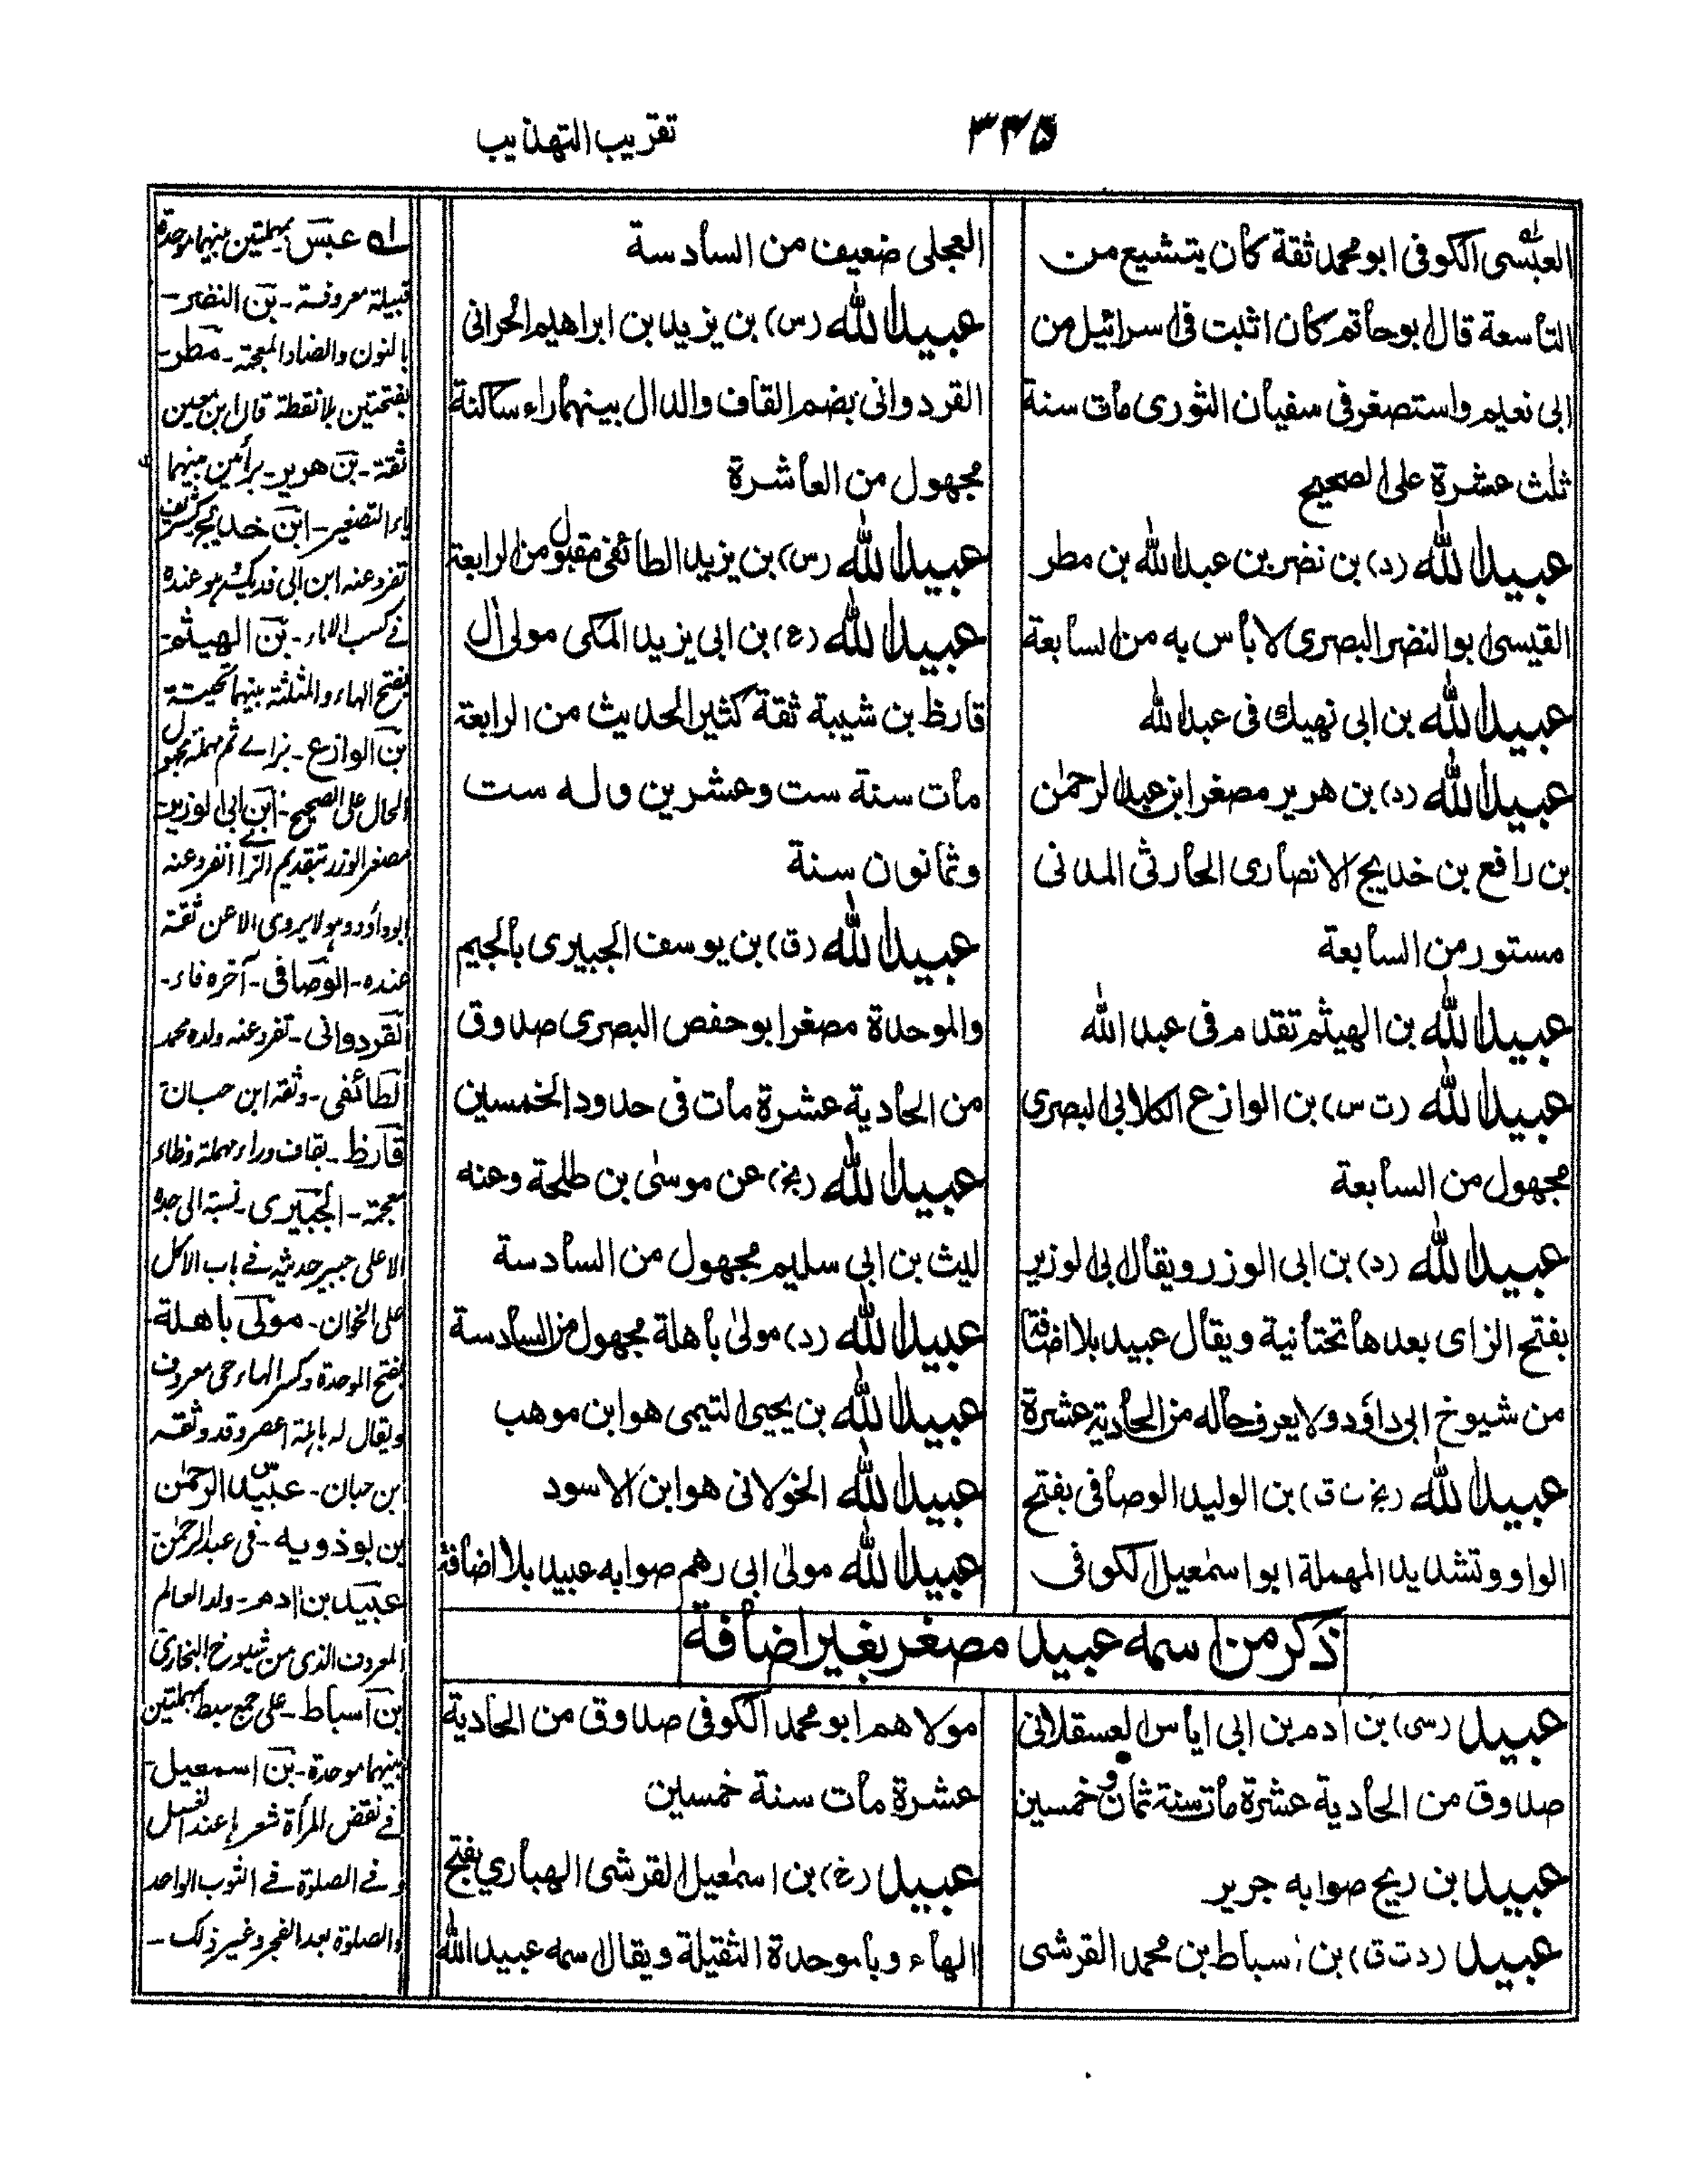 ۳۴۵
تقريب التهذيب
العبسى الكوفى ابو محمد ثقة كان يتشيع من
التاسعة قال ابو حاتم كان اثبت فى اسرائيل من
ابى نعيم واستصغر فى سفيان الثورى مات سنة
ثلث عشرة على الصحيح
عبيد الله (د) بن نضر بن عبد الله بن مطر
القيسى ابو النضر البصرى لا بأس به من السابعة
عبيد الله بن ابى نهيك فى عبد الله
عبيد الله (د) بن هرير مصغر ابن عبد الرحمٰن
بن رافع بن خديج الانصارى الحارثى المدنى
مستور من السابعة
عبيد الله بن الهيثم تقدم فى عبد الله
عبيد الله (ت س) بن الوازع الكلابى البصري
مجهول من السابعة
عبيد الله (د) بن ابى الوزر ويقال ابى لوزير
بفتح الزاى بعدها تحتانية ويقال عبيد بلا اضافة
من شيوخ ابى داؤد ولا يعرف حاله من الحادية عشرة
عبيد الله (بخ ت ق) بن الوليد الوصافى بفتح
الواو وتشديد المهملة ابو اسمٰعيل الكوفى
العجلى ضعيف من السادسة
عبيد الله (س) بن يزيد بن ابراهيم الحرانى
القردوانى بضم القاف والدال بينهما راء ساكنة
مجهول من العاشرة
عبيد الله (س) بن يزيد الطائفى مقبول من الرابعة
عبيد الله (ع) بن ابى يزيد المكى مولى آل
قارظ بن شيبة ثقة كثير الحديث من الرابعة
مات سنة ست وعشرين وله ست
وثمانون سنة
عبيد الله (ق) بن يوسف الجبيرى بالجيم
والموحدة مصغرا ابو حفص البصرى صدوق
من الحادية عشرة مات فى حدود الخمسين
عبيد الله (بخ) عن موسىٰ بن طلحة وعنه
ليث بن ابى سليم مجهول من السادسة
عبيد الله (د) مولىٰ باهلة مجهول من السادسة
عبيد الله بن يحيى التيمى هو ابن موهب
عبيد الله الخولانى هو ابن الاسود
عبيد الله مولىٰ ابى رهم صوابه عبيد بلا اضافة
ذكر من اسمه عبيد مصغر بغير اضافة
عبيد (سى) بن آدم بن ابى اياس العسقلانى
صدوق من الحادية عشرة مات سنة ثمان و خمسين
عبيد بن ريج صوابه جرير
عبيد (د ت ق) بن اسباط بن محمد القرشى
مولاهم ابو محمد الكوفى صدوق من الحادية
عشرة مات سنة خمسين
عبيد (خ) بن اسمٰعيل القرشى الهباري بفتح
الهاء وبا موحدة الثقيلة ويقال اسمه عبيد الله
له عبس بمهملتين بينهما موحدة
قبيلة معروفة - بن النضر -
بالنون والضاد المعجمة - مطر -
بفتحتين بلا نقطة قال ابن معين
ثقة - بن هرير - برائين بينهما
ياء التصغير - ابن خديج
تفرد عنه ابن ابى فديك هو عنده
فى كسب الاماء - بن الهيثم -
بفتح الهاء والمثلثة بينهما تحتية
بن الوازع - بزاے ثم مهملة مجهول
الحال على الصحيح - ابن ابى الوزير
مصغر الوزر بتقديم الزاے انفرد عنه
ابو داؤد وهو لا يروى الا عن ثقة
عنده - الوصافى - آخره فاء -
القردوانى - تفرد عنه ولده محمد
الطائفى - وثقه ابن حبان
قارظ - بقاف وراء مهملة وظاء
معجمة - الجبيرى - نسبة الى جده
الاعلى جبير حديثه فى باب الاكل
على الخوان - مولى باهلة -
بفتح الموحدة وكسر الهاء حى معروف
ويقال له باهلة اعصر وقد وثقه
ابن حبان - عبيد الرحمٰن
بن بوذويه - فى عبد الرحمٰن
عبيد بن آدم - ولد العالم
المعروف الذى من شيوخ البخارى
بن اسباط - على جمع سبط بمهملتين
بينهما موحدة - بن اسمعيل -
فى نقض المرأة شعرها عند الغسل
و فى الصلوة فى الثوب الواحد
والصلوة بعد الفجر وغير ذلك -